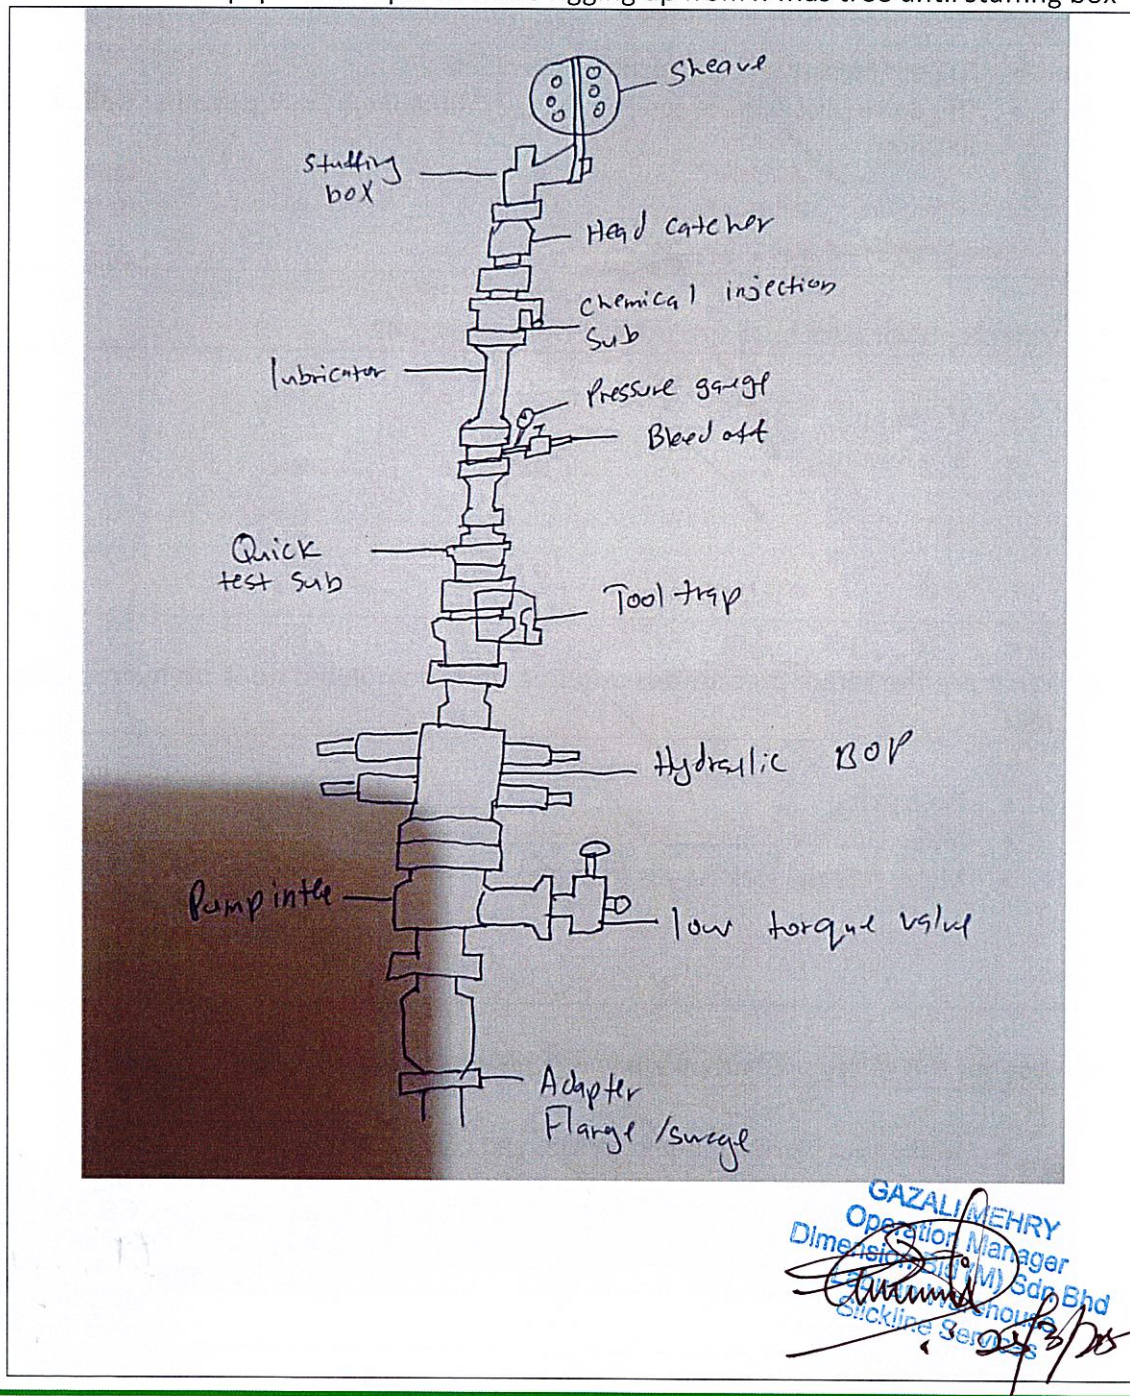 rigging up from X-mas tree until stuffing box
Sheave
Stuffing
box
Head catcher
Chemical injection
Sub
lubricator
Pressure gauge
Bleed off
Quick
test sub
Tool trap
Hydraulic BOP
Pump in tee
low torque valve
Adapter
Flange /swege
GAZALI MEHRY
Operation Manager
Dimension Bid (M) Sdn Bhd
Labuan Warehouse
Slickline Services